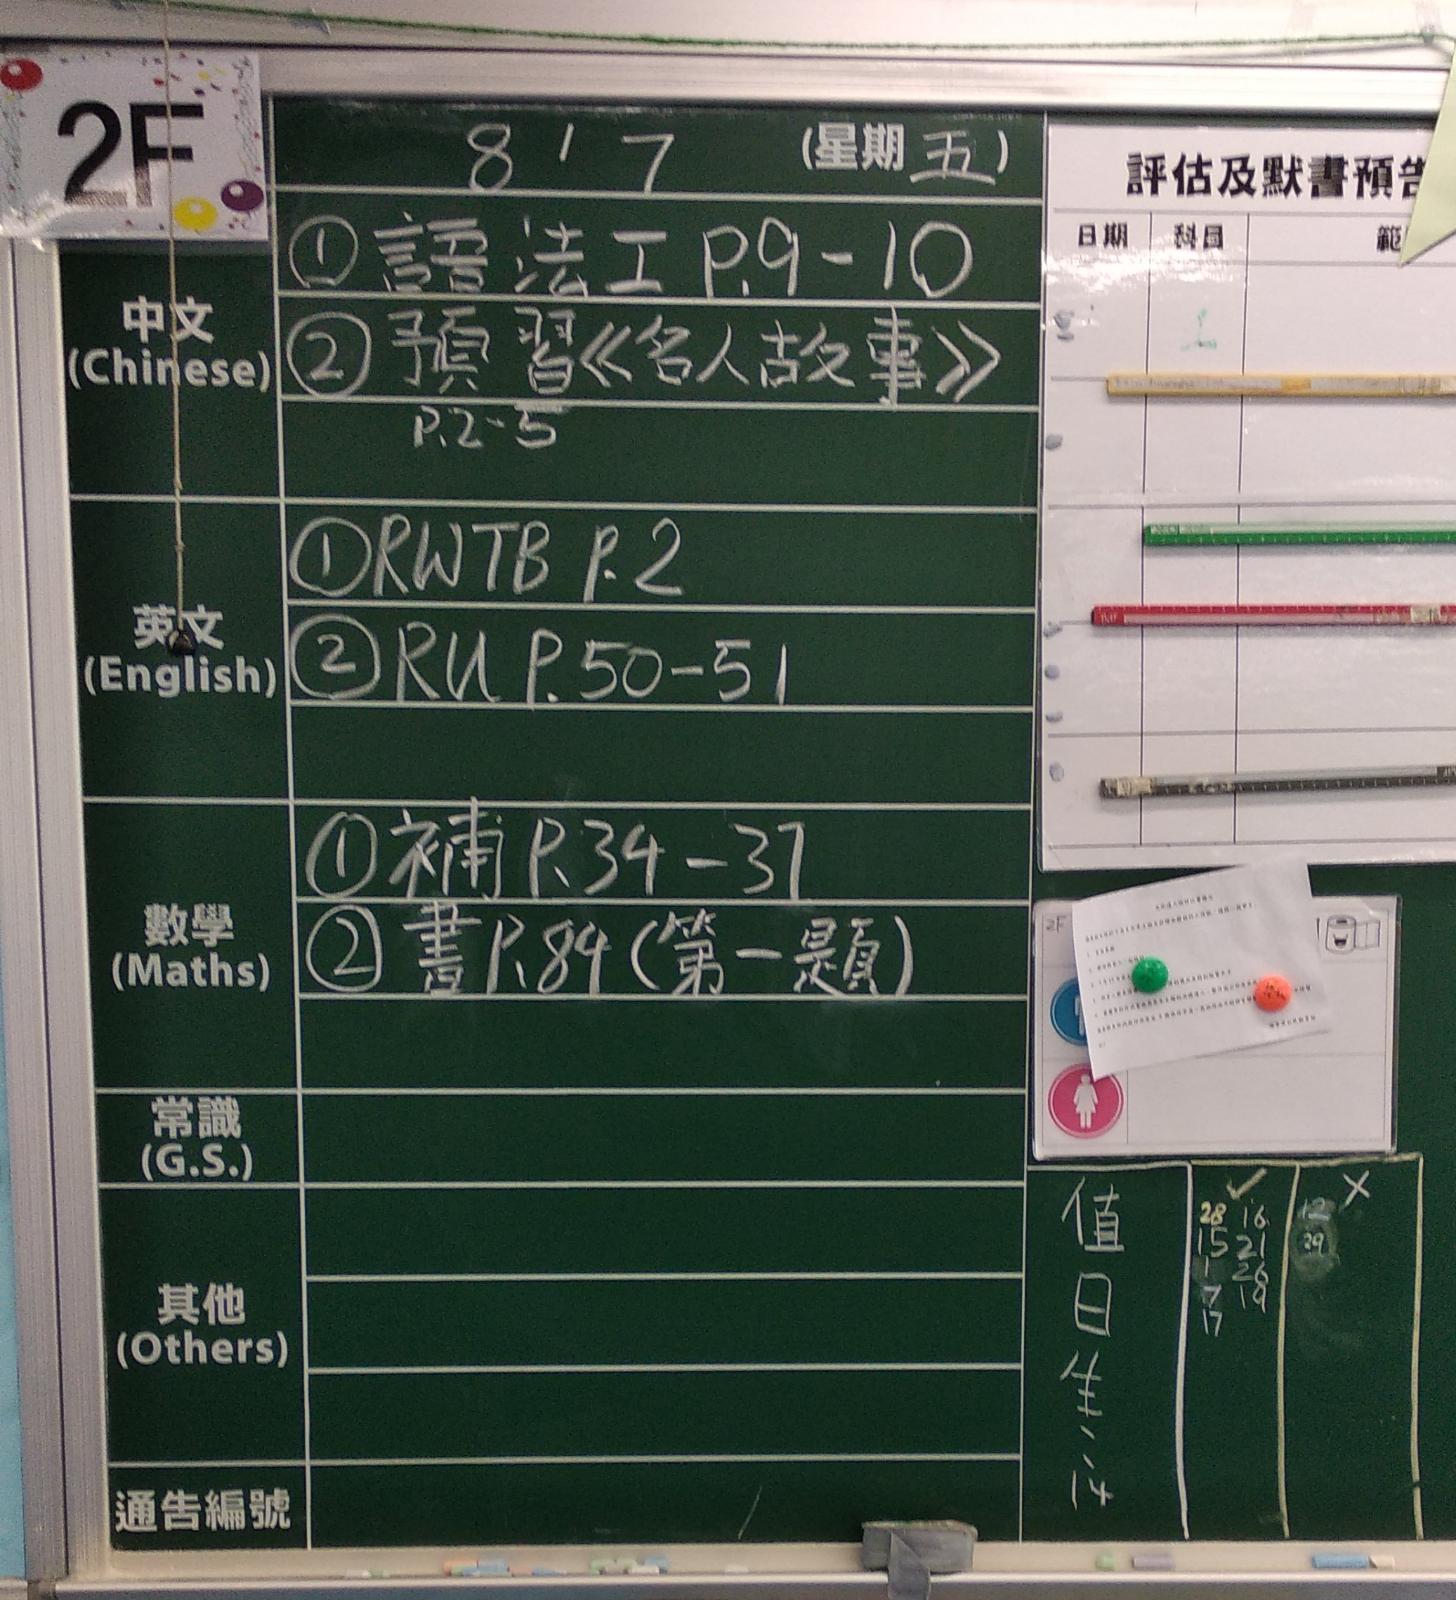 2F
8 / 7 (星期五)
中文
(Chinese)
① 語法工 P.9-10
② 預習《名人故事》
P.2-5
英文
(English)
① RWTB P.2
② RU P.50-51
數學
(Maths)
① 補 P.34-37
② 書 P.84 (第一題)
常識
(G.S.)
其他
(Others)
通告編號
評估及默書預告
日期 科目
2F
值日生:14
✓ ×
28 16 12
15 21 29
1 26
7 19
17